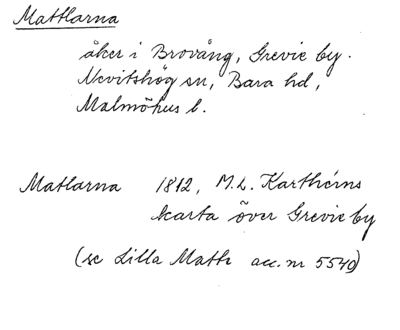 Mattlarna
åker i Brovång, Grevie by.
Nevitshög sn, Bara hd,
Malmöhus l.
Matlarna 1812, M.L. Karthéms
karta över Grevie by
(se Lilla Math acc. nr 5540)